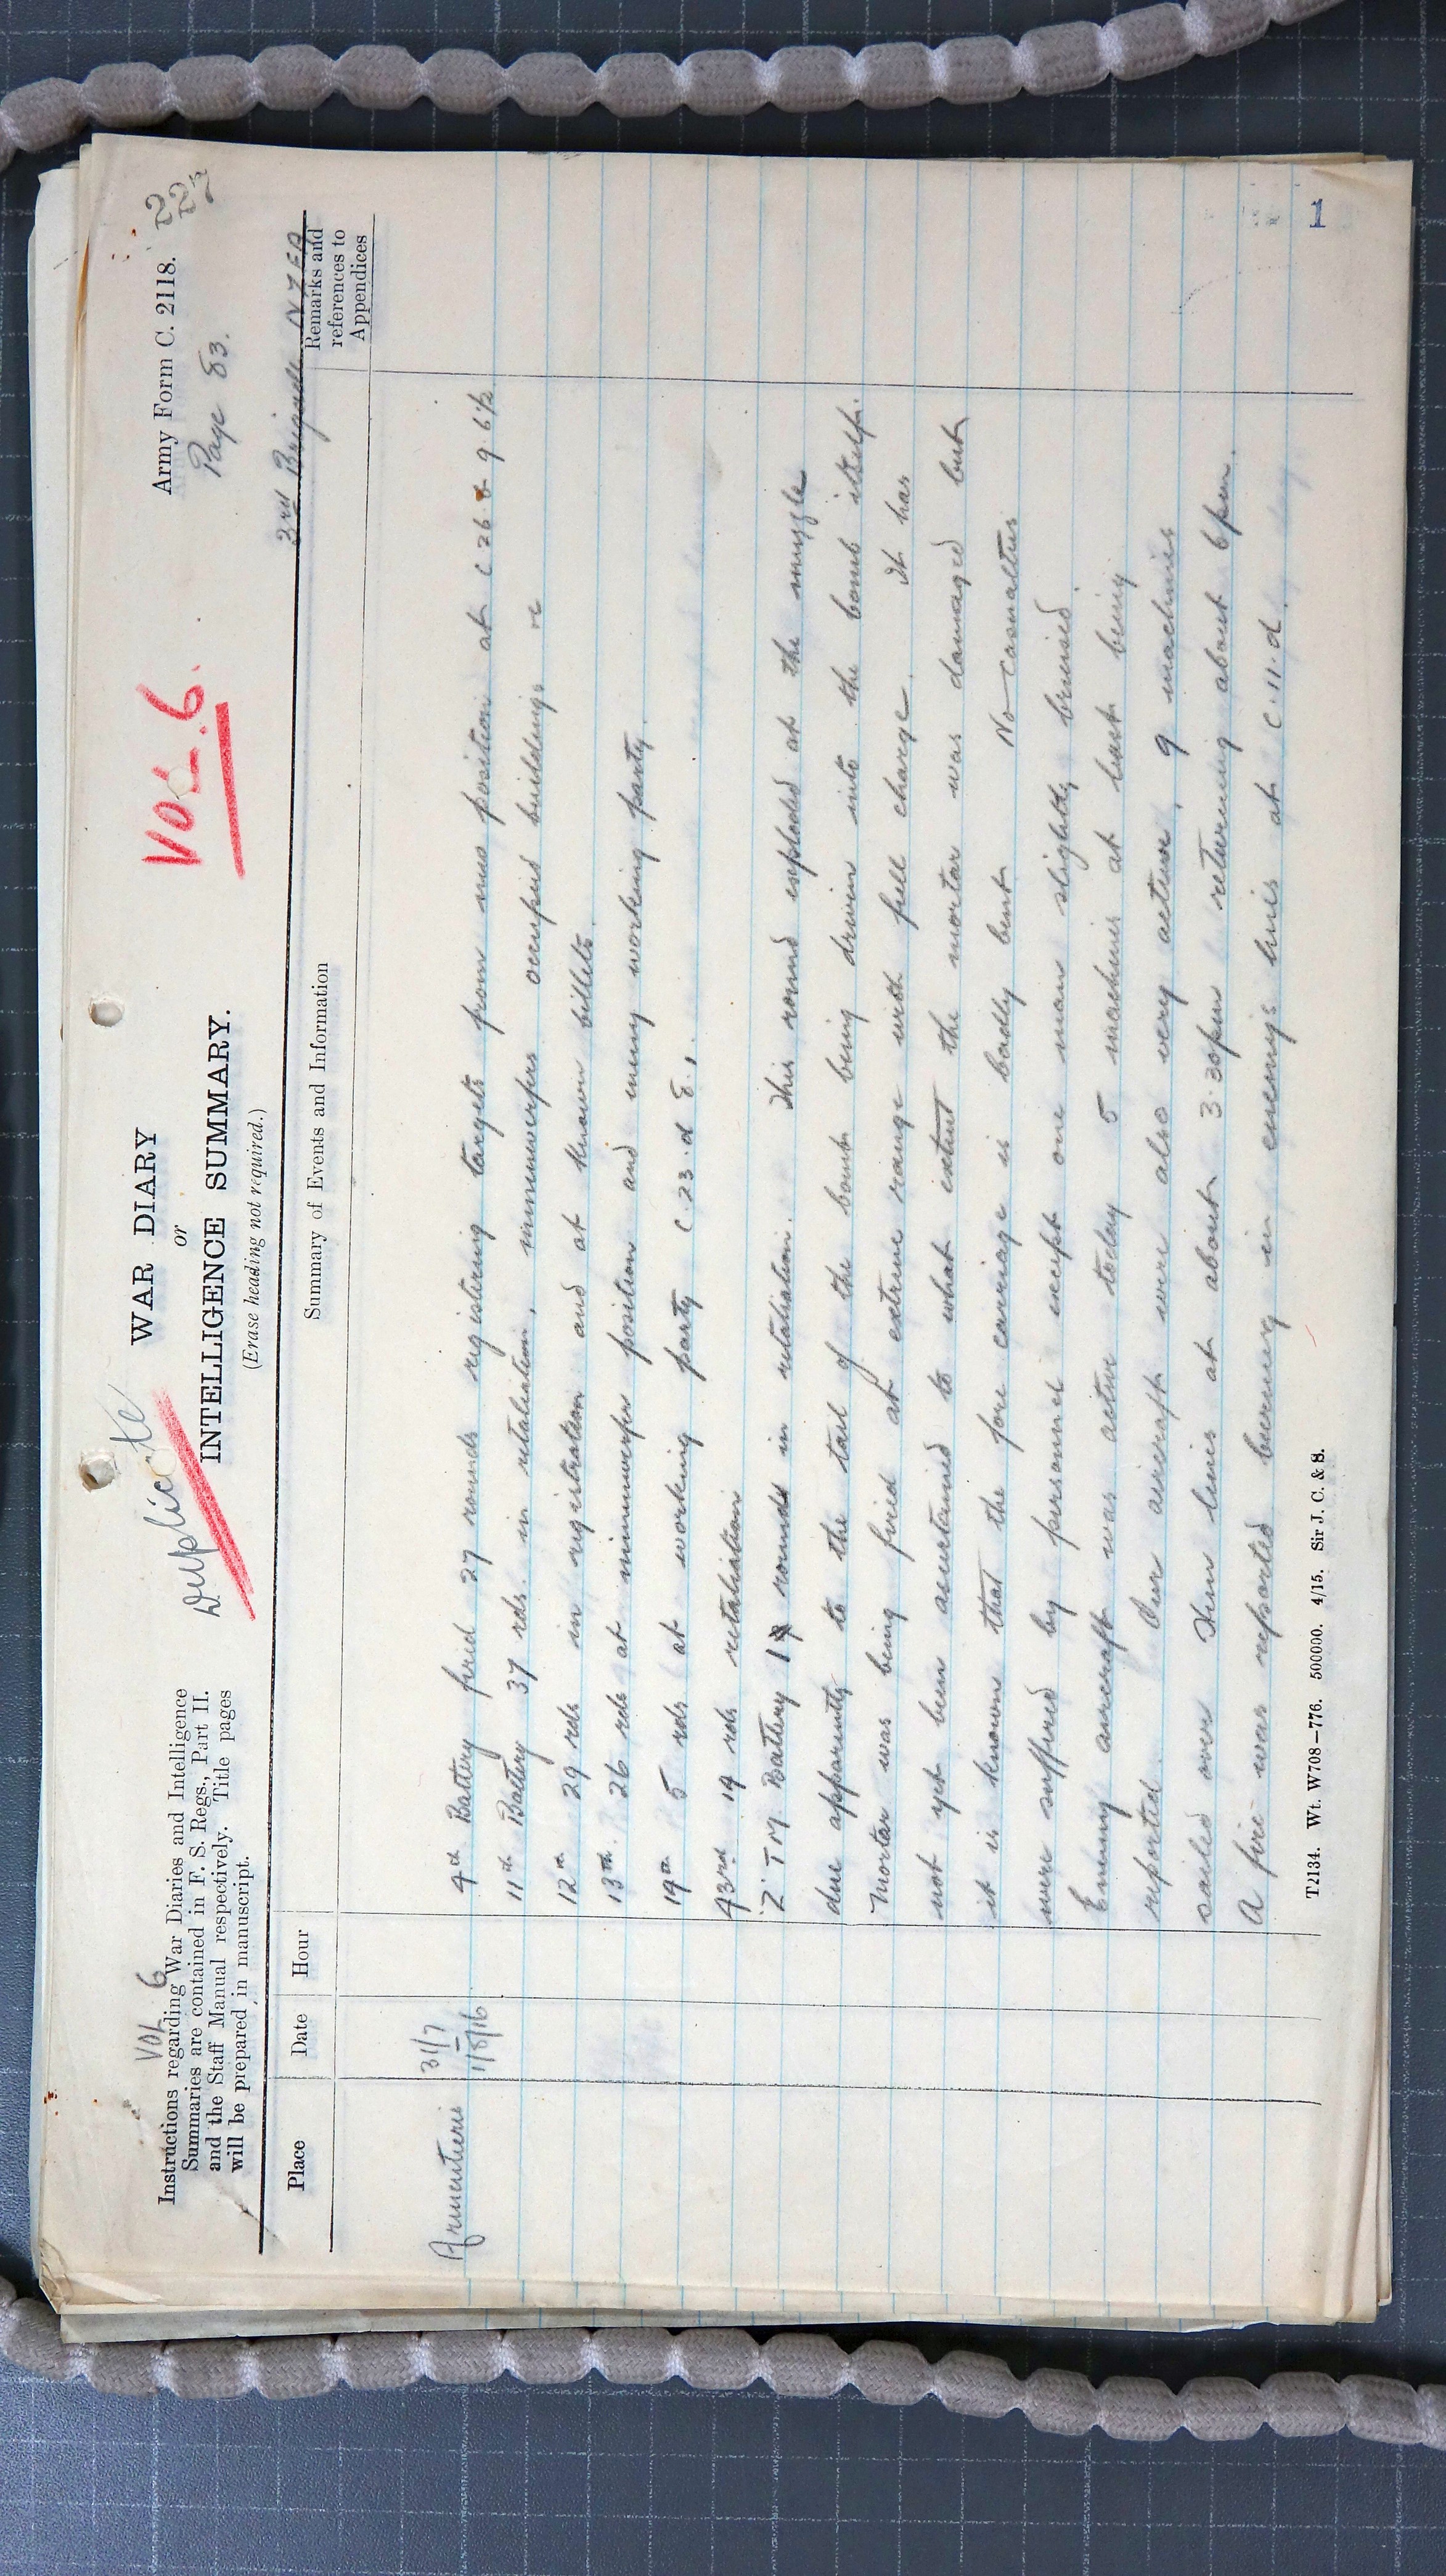 Army Form C. 2118.
227
Page 83.
WAR DIARY
or
INTELLIGENCE SUMMARY.
(Erase heading not required.)
Duplicate
VOL. 6.
VOL 6
Instructions regarding War Diaries and Intelligence
Summaries are contained in F. S. Regs., Part II.
and the Staff Manual respectively. Title pages
will be prepared in manuscript.
3rd Brigade NZFA
Place Date Hour Summary of Events and Information Remarks and
references to
Appendices
Armentieres 31/7
1/8/16
4th Battery fired 27 rounds registering targets from new position at C 26. 9. 6½
11th Battery 37 rds. in retaliation, minnewerfers occupied buildings
12th 29 rds in registration and at known billets.
13th. 26 rds at minnewerfer position and enemy working party.
19th 5 rds at working party C.23.d 8.1.
43rd 19 rds retaliation
Z. T M. Battery rounds in retaliation. This round exploded at the muzzle
due apparently to the tail of the bomb being driven into the bomb itself.
Mortar was being fired at extreme range with full charge. It has
not yet been ascertained to what extent the mortar was damaged but
it is known that the fore carriage is badly bent. No casualties
were suffered by personnel except one man slightly bruised.
Enemy aircraft was active today 5 machines at least being
reported. Our aircraft were also very active, 9 machines
sailed over Hun lines at about 3.30pm returning about 6pm.
A fire was reported burning in enemy's lines at C.11.d.
T2134. Wt. W708—776. 500000. 4/15. Sir J. C. & S.
1